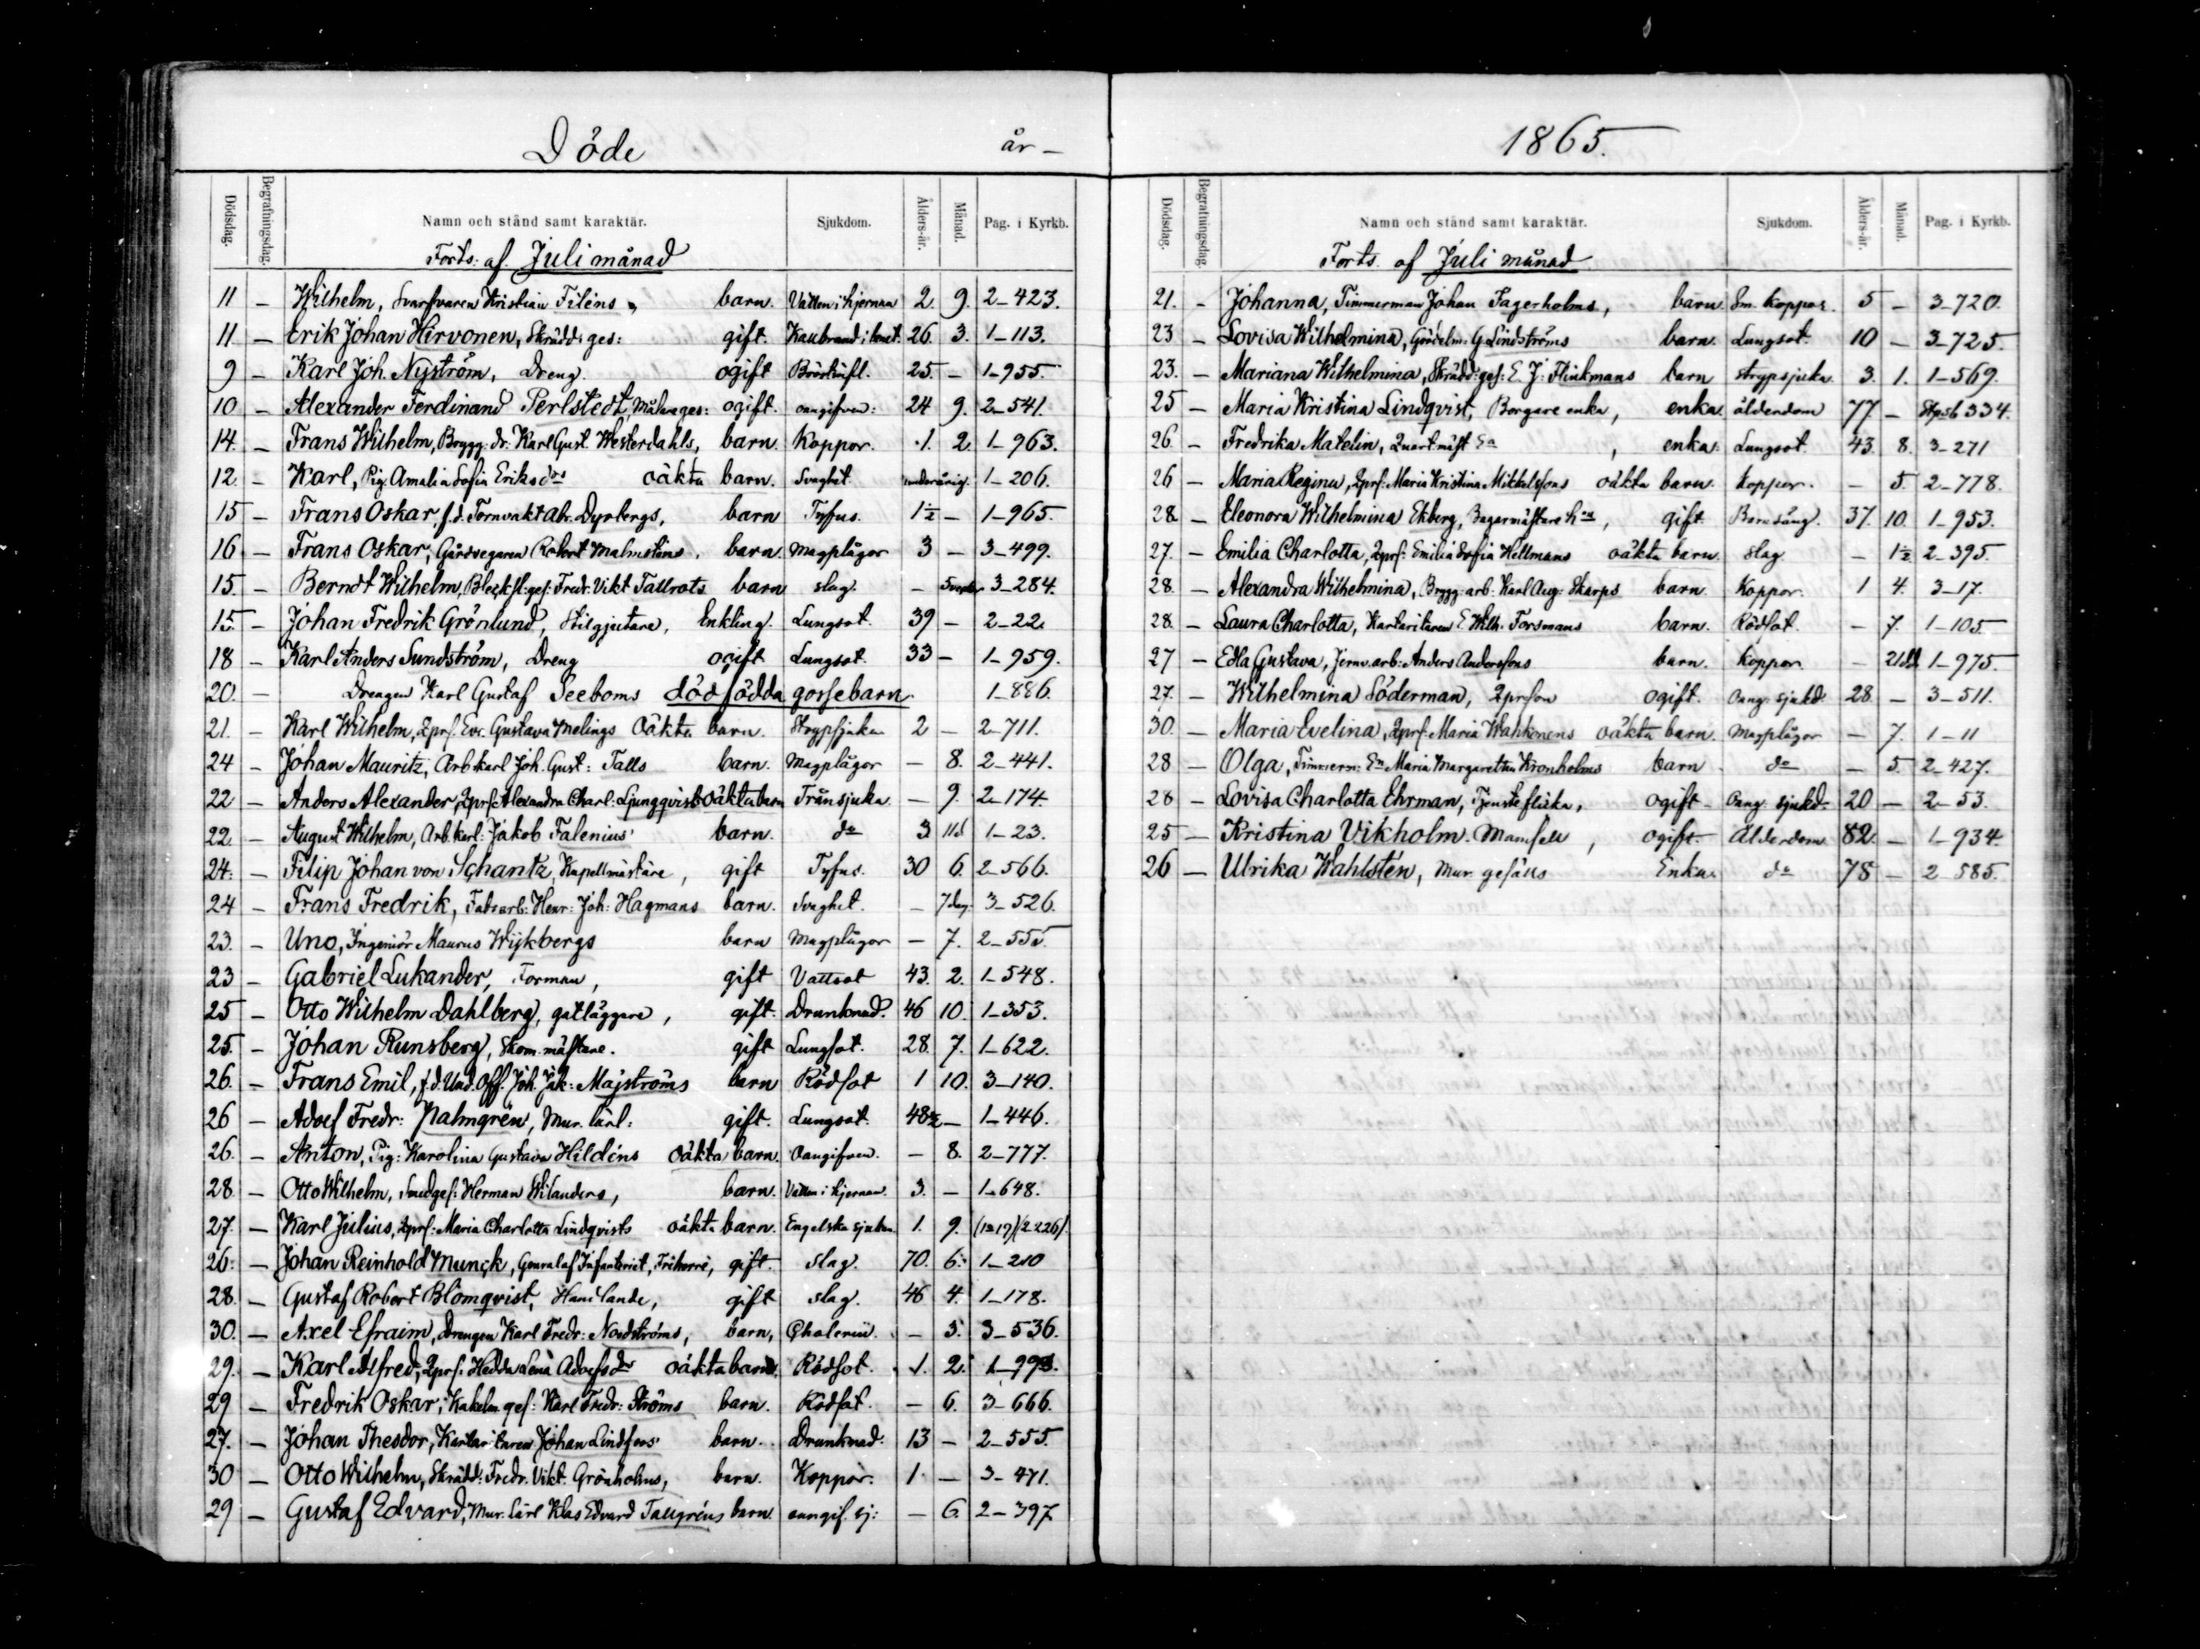 Döde år –
Dödsdag. Begrafningsdag. Namn och stånd samt karaktär. Sjukdom. Ålders-år. Månad. Pag. i Kyrkb.
Forts: af. Juli månad
11 – Wilhelm, Svarfvaren Kristian Filéns, barn. Vatten i hjernan 2. 9. 2–423.
11 – Erik Johan Hirvonen, Skrädd: ges: gift. Kallbrand i 26. 3. 1–113.
9 – Karl Joh. Nyström, Dreng. ogift 25. – 1–955.
10 – Alexander Ferdinand Perlstedt, Målareges: ogift. oangifven: 24 9. 2–541.
14. – Frans Wilhelm, Brygg. dr. Karl Gust. Westerdahls, barn. Koppor. 1. 2. 1–963.
12. – Karl, Pig. Amalia Sofia Eriksdrs oäkta barn. Svaghet. underårig. 1–206.
15 – Frans Oskar, f.d. Tornvakt Abr. Dyrbergs, barn Tyfus. 1½ – 1–965.
16 – Frans Oskar, Gårdsegaren Robert Malmsténs, barn. Magplågor 3 – 3–499.
15. – Berndt Wilhelm, Blecksl: ges: Fredr. Vikt Tallrots barn slag. – 3–284.
15. – Johan Fredrik Grönlund, Stilgjutare, Enkling. Lungsot. 39 – 2–22.
18 – Karl Anders Sundström, Dreng ogift Lungsot. 33 – 1–959.
20. – Drengen Karl Gustaf Seeboms dödfödda gossebarn 1–886.
21. – Karl Wilhelm, Qprs. Eva Gustava Melings Oäkta barn. Strypsjuka 2 – 2–711.
24 – Johan Mauritz, Arb.karl Joh. Gust: Talls barn. Magplågor – 8. 2–441.
22 – Anders Alexander, Qprs. Alexandra Charl: Ljungqvists oäkta barn Trånsjuka. – 9. 2–174.
22 – August Wilhelm, Arb.karl: Jakob Falenius' barn. do 3 11d 1–23.
24. – Filip Johan von Schantz, Kapellmästare, gift Tyfus. 30 6. 2–566.
24 – Frans Fredrik, Fabr.arb: Henr: Joh: Hagmans barn. Svaghet. – 7 dag. 3–526.
23. – Uno, Ingeniör Maurus Wijkbergs barn Magplågor – 7. 2–555.
23 – Gabriel Lukander, Forman, gift Vattsot 43. 2. 1–548.
25 – Otto Wilhelm Dahlberg, gatläggare, gift. Drunknad. 46 10. 1–353.
25. – Johan Runsberg, Skom. mästare. gift Lungsot. 28. 7. 1–622.
26. – Frans Emil, f.d. Und. Off. Joh. Jak: Majströms barn Rödsot 1 10. 3–140.
26 – Adolf Fredr: Palmgrén, Mur. lärl: gift. Lungsot. 48½ – 1–446.
26. – Anton, Pig: Karolina Gustava Hildéns oäkta barn. Oangifven. – 8. 2–777.
28. – Otto Wilhelm, Smedges: Herman Wilanders, barn. Vatten i hjernan. 3. – 1–648.
27. – Karl Julius, Qprs: Maria Charlotta Lindqvists oäkta barn. Engelska sjukan 1. 9.
26. – Johan Reinhold Munck, General af Infanteriet, Friherre, gift. Slag. 70. 6. 1–210
28. – Gustaf Robert Blomqvist, Handlande, gift slag. 46 4. 1–178.
30. – Axel Efraim, Drengen Karl Fredr: Nordströms, barn, – 3. 3–536.
29. – Karl Alfred, Qprs: Hedda Lena Adolfsdr oäkta barn. Rödsot. 1. 2. 1–993.
29 – Fredrik Oskar, Kakelm. ges: Karl Fredr: Ströms barn. Rödsot. – 6. 3–666.
27. – Johan Theodor, Johan Lindfors' barn. Drunknad. 13 – 2–555.
30 – Otto Wilhelm, Skrädd: Fredr. Vikt. Grönholms, barn. Koppor. 1. – 3–471.
29 – Gustaf Edvard, Mur. lärl Klas Edvard Tallgréns barn oangif. sj: – 6. 2–397
1865.
Dödsdag. Begrafningsdag. Namn och stånd samt karaktär. Sjukdom. Ålders-år. Månad. Pag. i Kyrkb.
Forts. af Juli månad
21. – Johanna, Timmerman Johan Fagerholms, barn Sm. koppor. 5 – 3–720.
23 – Lovisa Wilhelmina, Gördelm: G. Lindströms barn. Lungsot. 10 – 3–725.
23. – Mariana Wilhelmina, Skrädd: ges: E. J. Flinkmans barn strypsjuka. 3. 1. 1–569.
25 – Maria Kristina Lindqvist, Borgare enka, enka ålderdom 77 – 334.
26. – Fredrika Matelin, enka. Lungsot. 43. 8. 3–271
26 – Maria Regina, Qprs: Maria Kristina Mikkelsons oäkta barn. koppor. – 5. 2–778.
28 – Eleonora Wilhelmina Ekberg, Bagarmästare hu, gift Barnsäng. 37. 10. 1–953.
27. – Emilia Charlotta, Qprs: Emilia Sofia Hellmans oäkta barn. slag – 1½ 2–395.
28. – Alexandra Wilhelmina, Brygg: arb: Karl Aug: Skarps barn. Koppor. 1 4. 3–17.
28. – Laura Charlotta, E. Wilh. Forsmans barn. Rödsot. – 7. 1–105.
27 – Edla Gustava, Jernv. arb: Anders Andersons barn. koppor – 21d 1–975.
27. – Wilhelmina Söderman, Qprson ogift. Oang: sjukd. 28 – 3–511.
30. – Maria Evelina, Qprs: Maria Wahkonens oäkta barn. Magplågor – 7. 1–11
28 – Olga, Timmerm: En Maria Margaretha Kronholms barn do – 5. 2–427.
28 – Lovisa Charlotta Ehrman, Tjensteflicka, ogift Oang: sjukd. 20 – 2–53.
25 – Kristina Vikholm. Mamsell, ogift. Ålderdom 82. – 1–934.
26 – Ulrika Wahlstén, Mur. gesälls Enka. do 78 – 2 585.